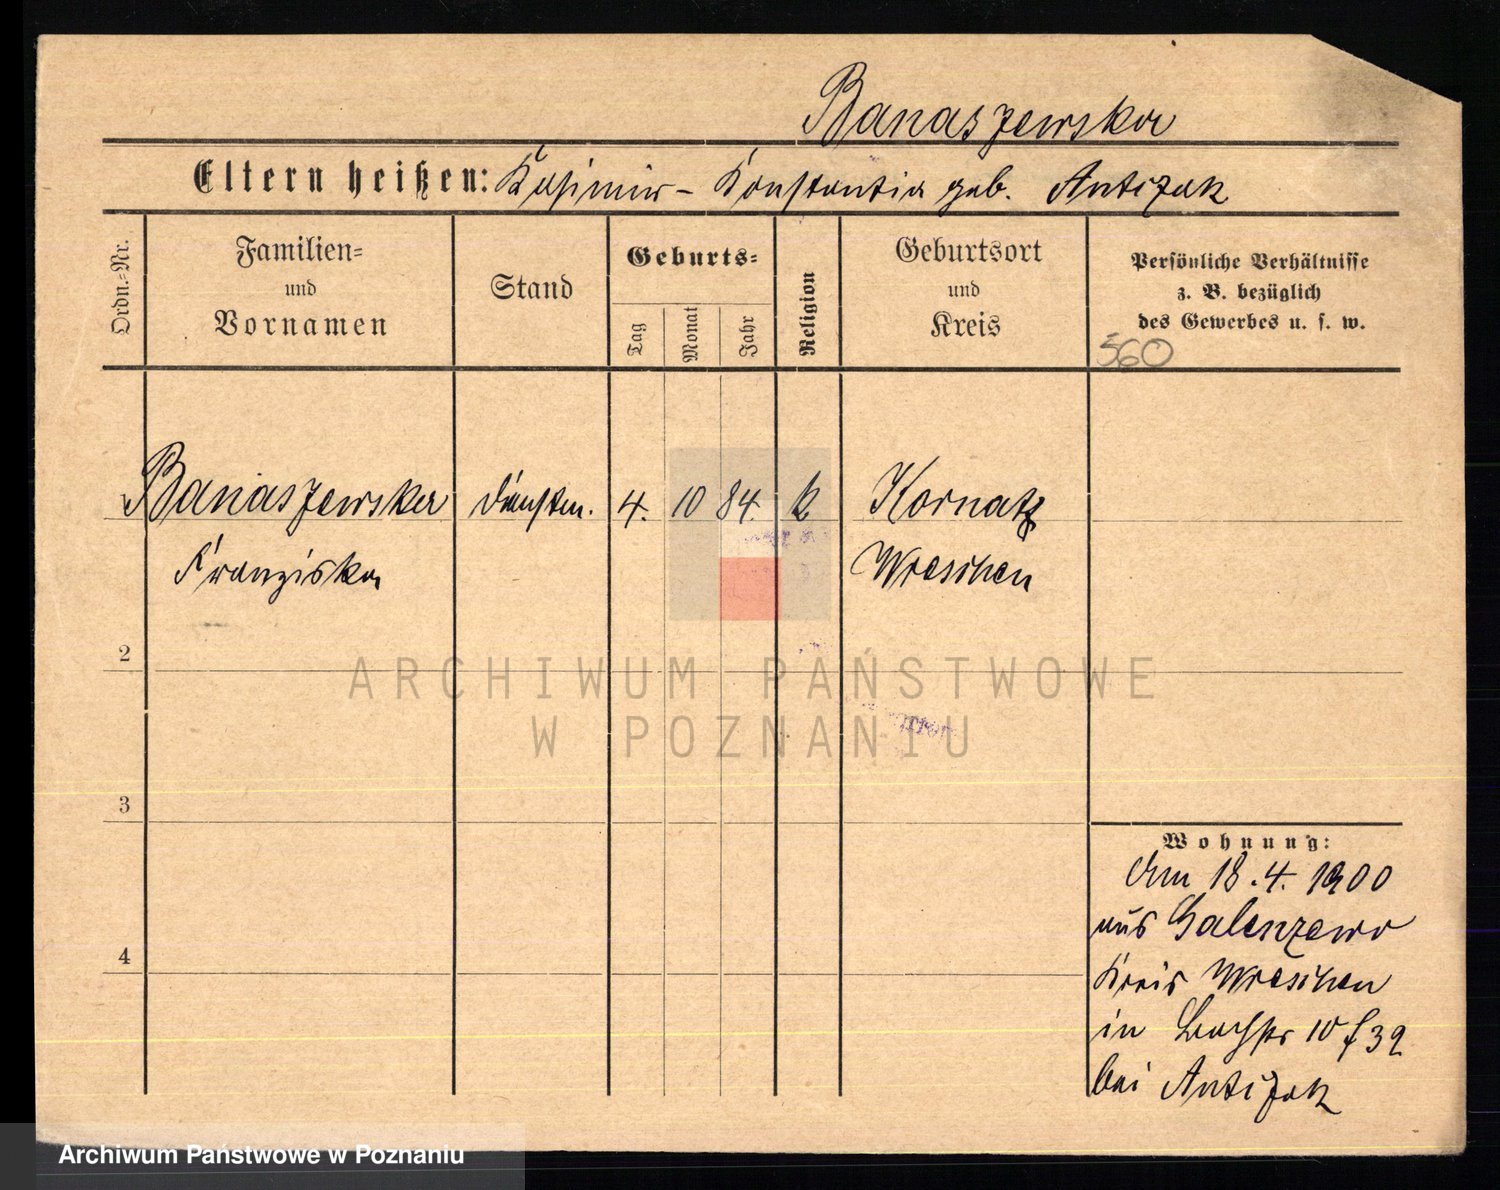 Banaszewska
Eltern heißen: Kasimir - Konstantia geb. Antczak
Ordn.-Nr.
Familien-
und
Vornamen
Stand
Geburts-
Tag
Monat
Jahr
Religion
Geburtsort
und
Kreis
Persönliche Verhältnisse
z. B. bezüglich
des Gewerbes u. s. w.
560
Banaszewska Dienstm. 4. 10 84. k Kornaty
Franziska Wreschen
2
ARCHIWUM PAŃSTWOWE
W POZNANIU
3
Wohnung:
Am 18.4.1900
aus Galenzewo
4
Kreis Wreschen
in 10 f 39
bei Antczak
Archiwum Państwowe w Poznaniu